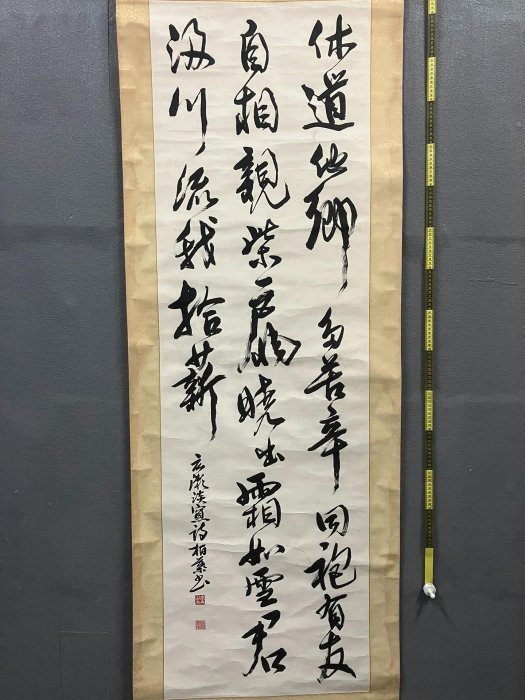 休道他郷多苦辛同袍有友
自相親柴扉曉出霜如雪君
汲川流我拾薪
広瀬淡窓詩柏書